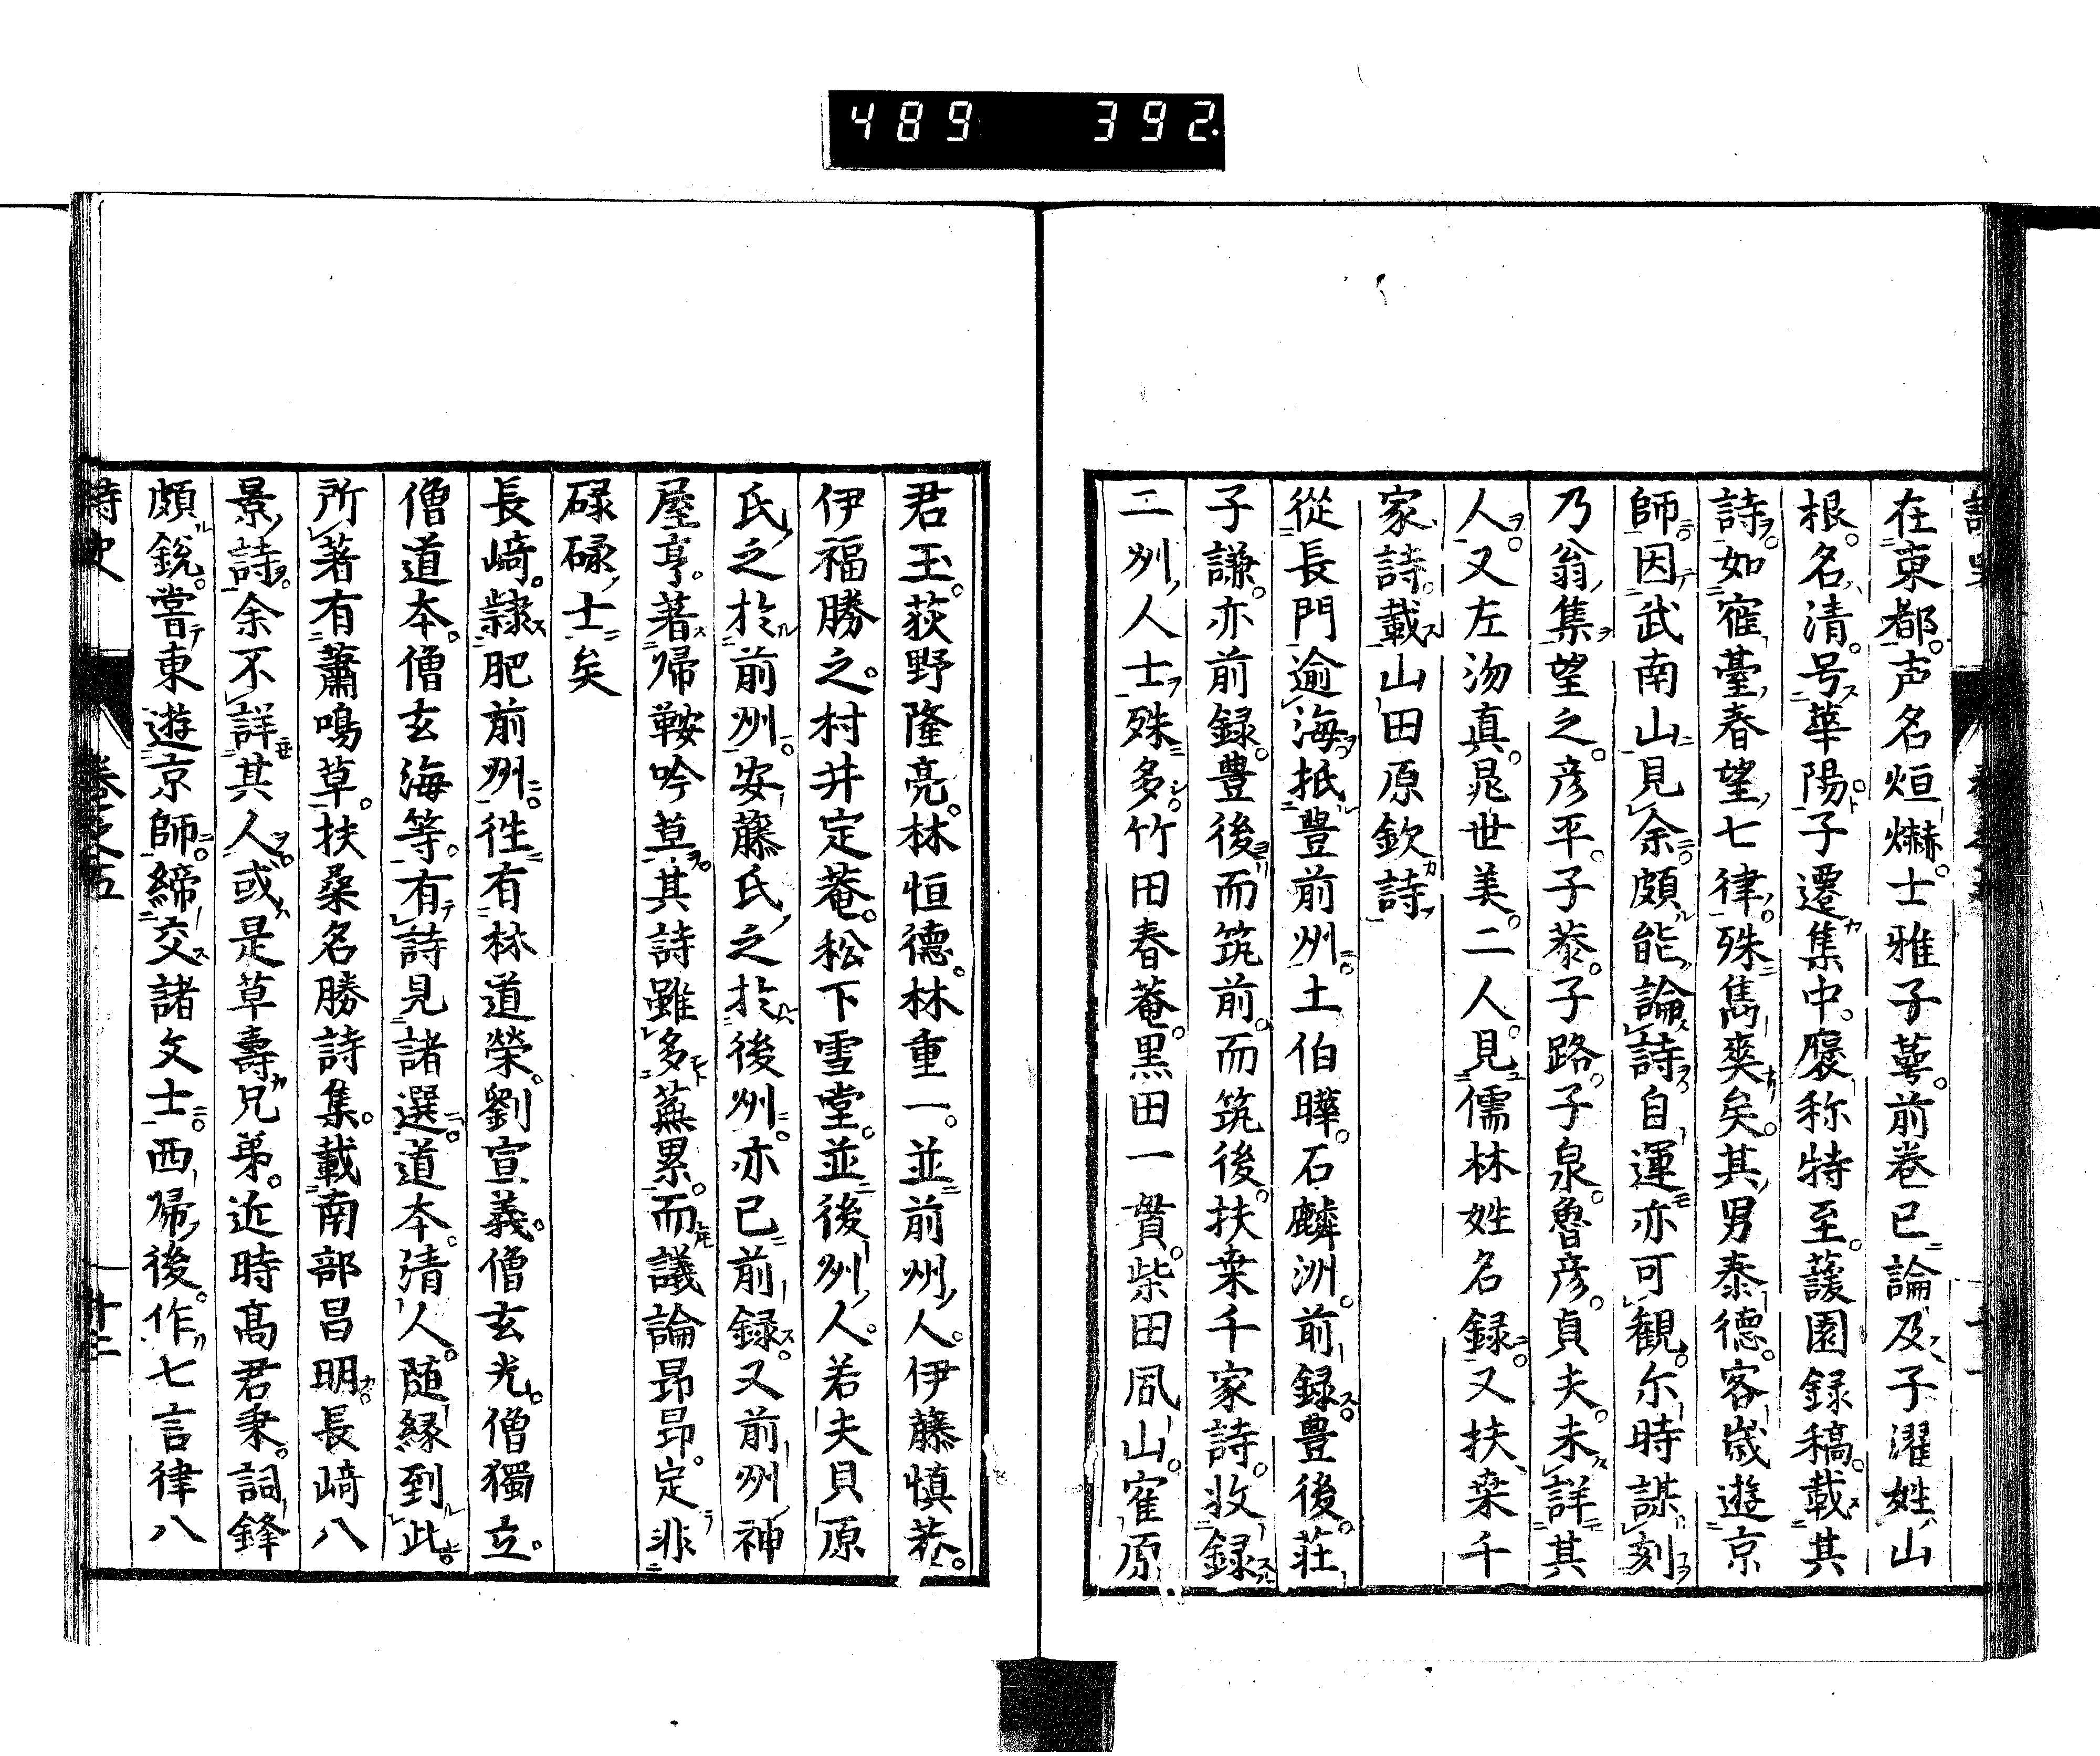 489 392.
在東都。声名烜爀。士雅子萼。前巻已論及。子濯姓山
根。名清。号華陽。子遷集中。褒称特至。蘐園録稿。載其
詩。如寉臺春望七律。殊雋爽矣。其男泰德。客歳遊京
師。因武南山見余。頗能論詩。自運亦可観。尓時謀刻
乃翁集。望之。彦平。子恭。子路。子泉。魯彦。貞夫。未詳其
人。又左沕真。晁世美。二人。見儒林姓名録。又扶桒千
家詩。載山田原欽詩
從長門逾海抵豊前州。土伯曄。石麟洲。前録。豊後。荘
子謙。亦前録。豊後而筑前。而筑後。扶桒千家詩。收録
二州人士殊多。竹田春菴。黒田一貫。柴田凮山。寉原
君玉。荻野隆亮。林恒德。林重一。並前州人。伊藤慎菴。
伊福勝之。村井定菴。松下雪堂。並後州人。若夫貝原
氏之於前州。安藤氏之於後州。亦已前録。又前州神
屋亨。著帰鞍吟草。其詩雖多蕪累。而議論昂昂。定非
碌碌士矣
長崎。隷肥前州。徃有林道榮。劉宣義。僧玄光。僧獨立。
僧道本。僧玄海等。有詩見諸選。道本。清人。随縁到此
所著有蕭鳴草。扶桑名勝詩集。載南部昌明。長崎八
景詩。余不詳其人。或是草壽兄弟。近時高君秉。詞鋒
頗銳。嘗東遊京師。締交諸文士。西帰後。作七言律八
詩史
巻之五
廿二